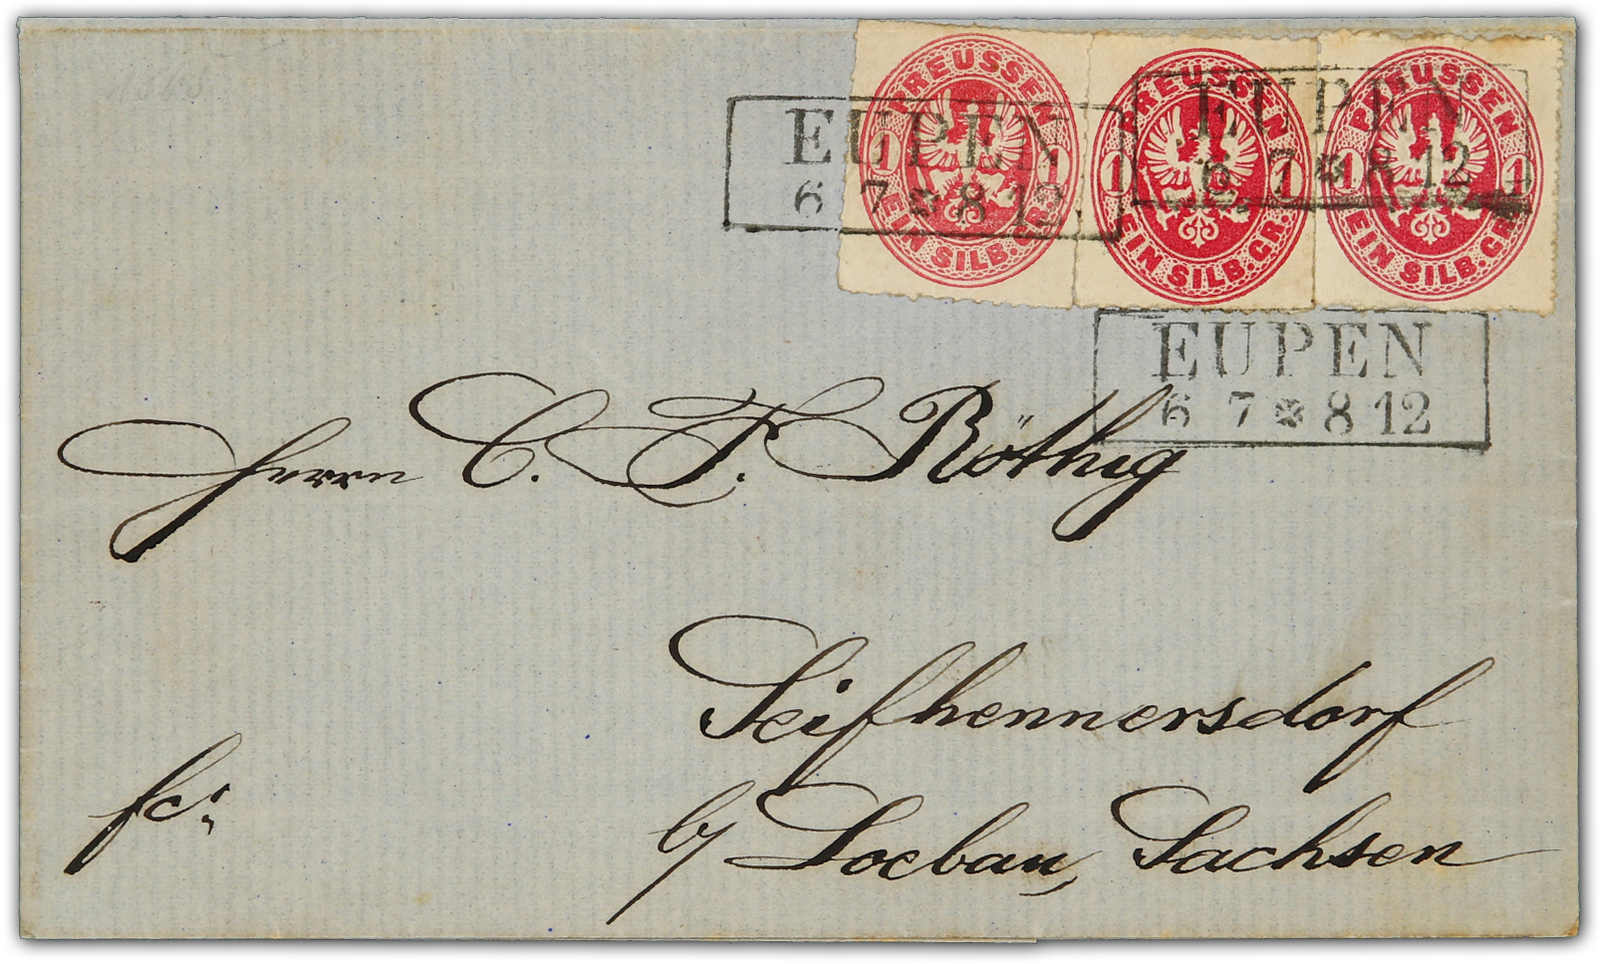 PREUSSEN
1 1
EIN SILB. GR.
PREUSSEN
1 1
EIN SILB. GR.
PREUSSEN
1 1
EIN SILB. GR.
EUPEN
6 7 * 8 12
EUPEN
6 7 * 8 12
EUPEN
6 7 * 8 12
Herrn C. F. Röthig
Seifhennersdorf
fr: b/ Loebau, Sachsen